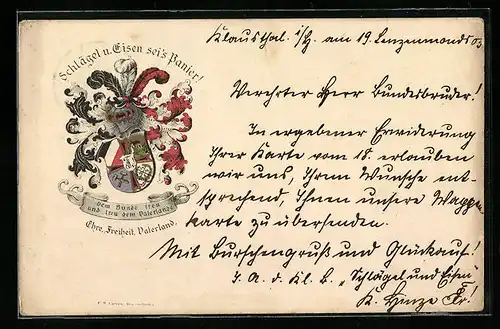 Schlägel u. Eisen sei's Panier!
Dem Bunde treu
und treu dem Vaterland.
Ehre, Freiheit, Vaterland.
Klausthal i/H. am 19. Lenzemonds 03
Verehrter Herr Bundesbruder!
In ergebener Erwiderung
Ihrer Karte vom 18. erlauben
wir uns, Ihrem Wunsche ent-
sprechend, Ihnen unsere Wappen
karte zu übersenden.
Mit Burschengruß und Glückauf!
I. A. d. Kl. B. „Schlägel und Eisen"
K. Hinze